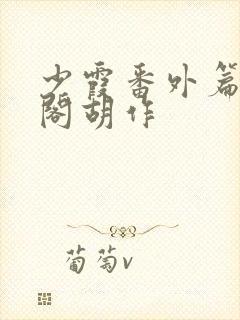 少霞番外篇
阁胡作
葡萄v